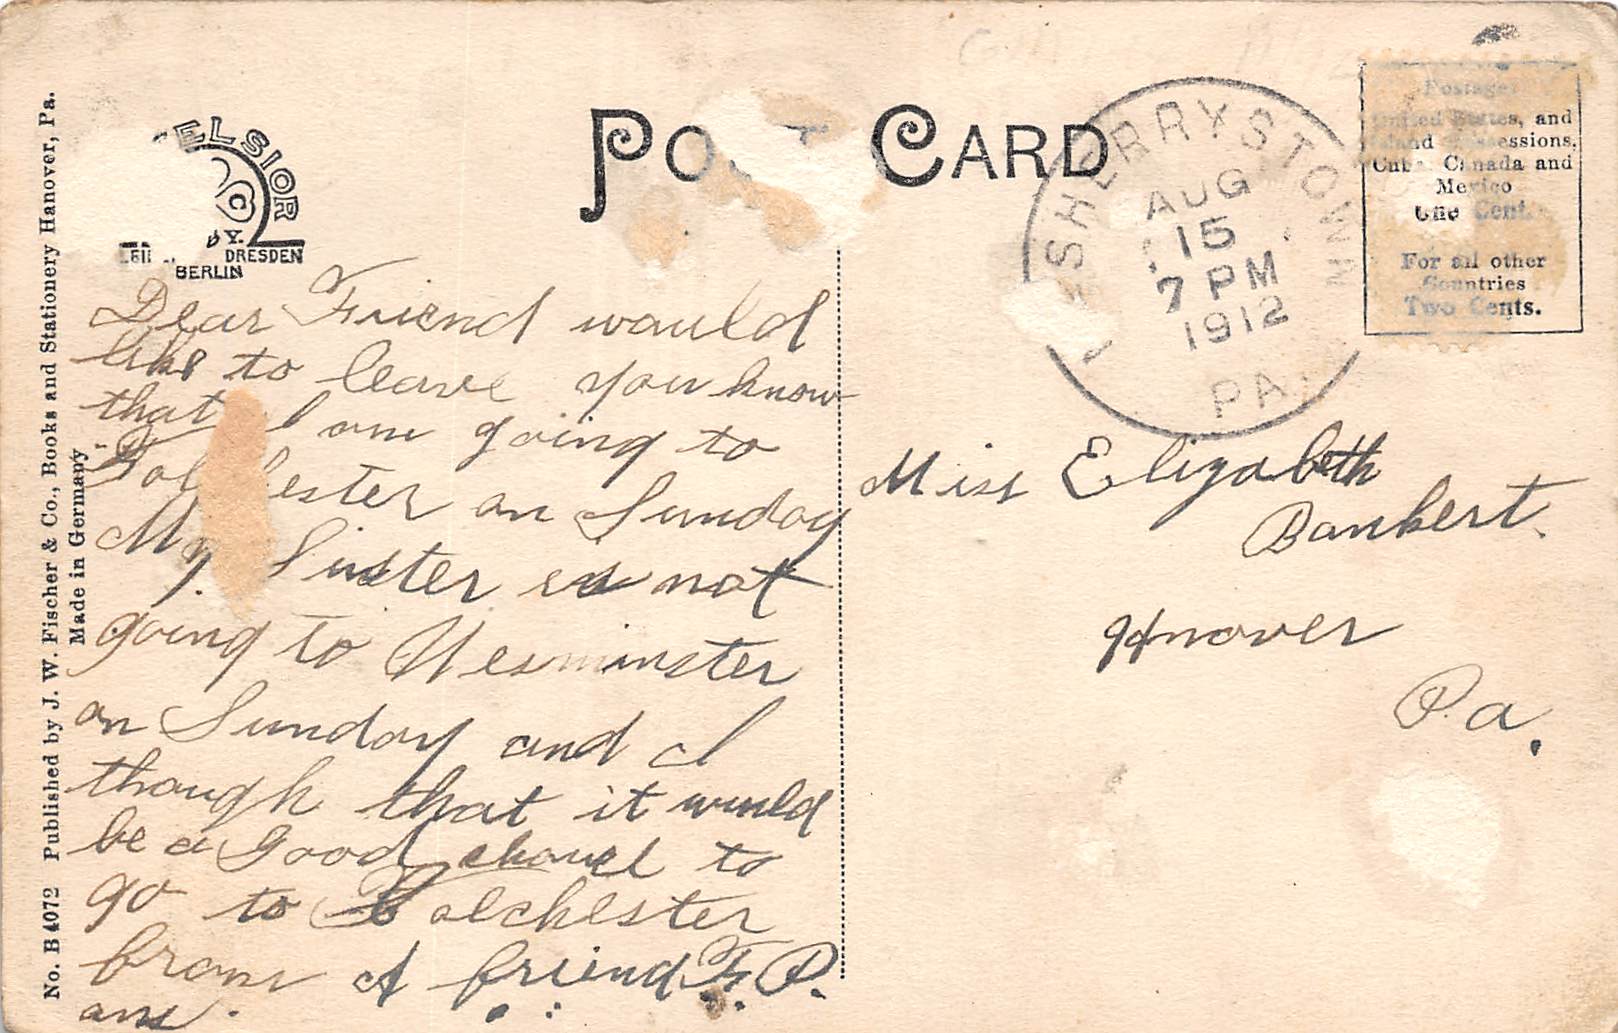 No. B4072 Published by J. W. Fischer & Co., Books and Stationery Hanover, Pa.
Made in Germany
ELSIOR
DRESDEN
BERLIN
CARD
SHERRYSTOWN
AUG
15
7 PM
1912
PA.
Postage
United States, and
Island Possessions,
Cuba, Canada and
Mexico
One Cent.
For all other
Countries
Two Cents.
Dear Friend would
like to leave you know
that I am going to
ester on Sunday
My Sister is not
going to Wesminster
on Sunday and I
though that it would
be a good chance to
go to Tolchester
from A friend F. P.
ans.
Miss Elizabeth
Bankert.
Hanover
Pa.